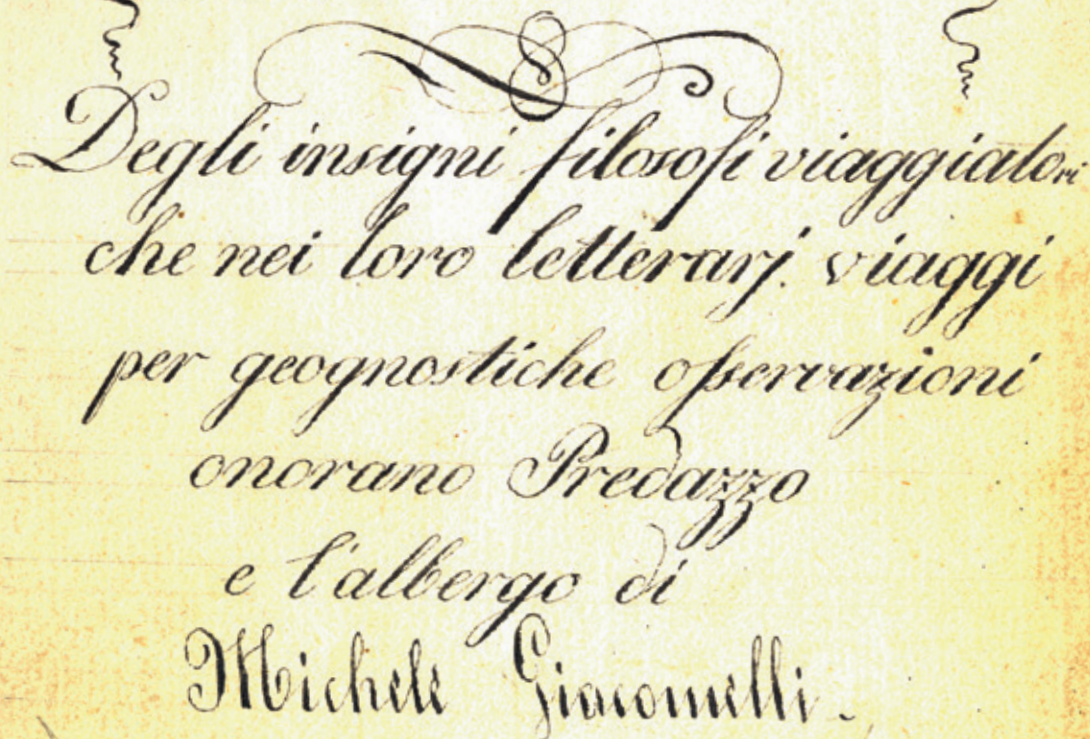 Degli insigni filosofi viaggiatori
che nei loro letterarj. viaggi
per geognostiche osservazioni
onorano Predazzo
e l'albergo di
Michele Giacomelli.